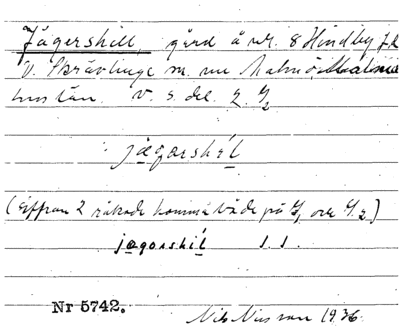 Jägershill, gård å nr. 8 Hindby fr
V. Skrävlinge sn. nu Malmö, Malmö
hus län. V. s. del. 2. G2
jægərshil
(Siffran 2 råkade komma både på G1 och G2)
jægərshil 1.1.
Nr 5742.
Nils Nilsson 1936.